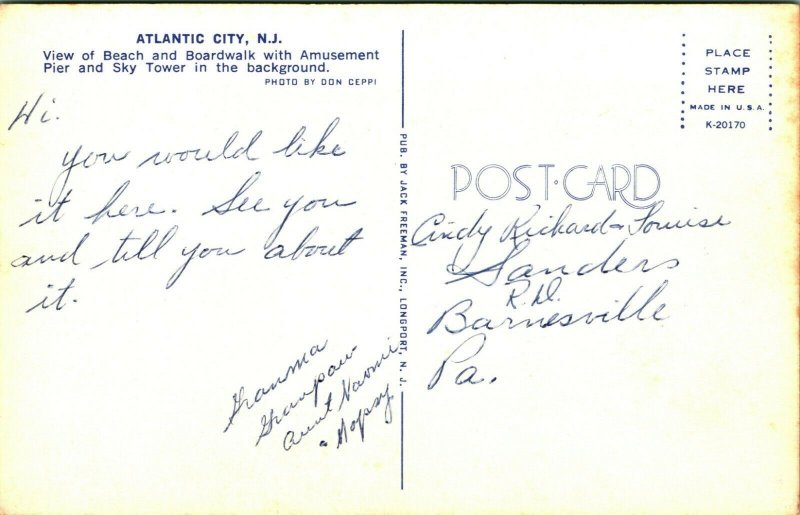 ATLANTIC CITY, N.J.
View of Beach and Boardwalk with Amusement
Pier and Sky Tower in the background.
PHOTO BY DON CEPPI
Hi.
you would like
it here. See you
and tell you about
it.
Granma
Granpaw
Aunt Naomi
PUB. BY JACK FREEMAN, INC., LONGPORT, N. J.
PLACE
STAMP
HERE
MADE IN U.S.A.
K-20170
POST-CARD
Cindy Richard & Louise
Sanders
R.D.
Barnesville
Pa.